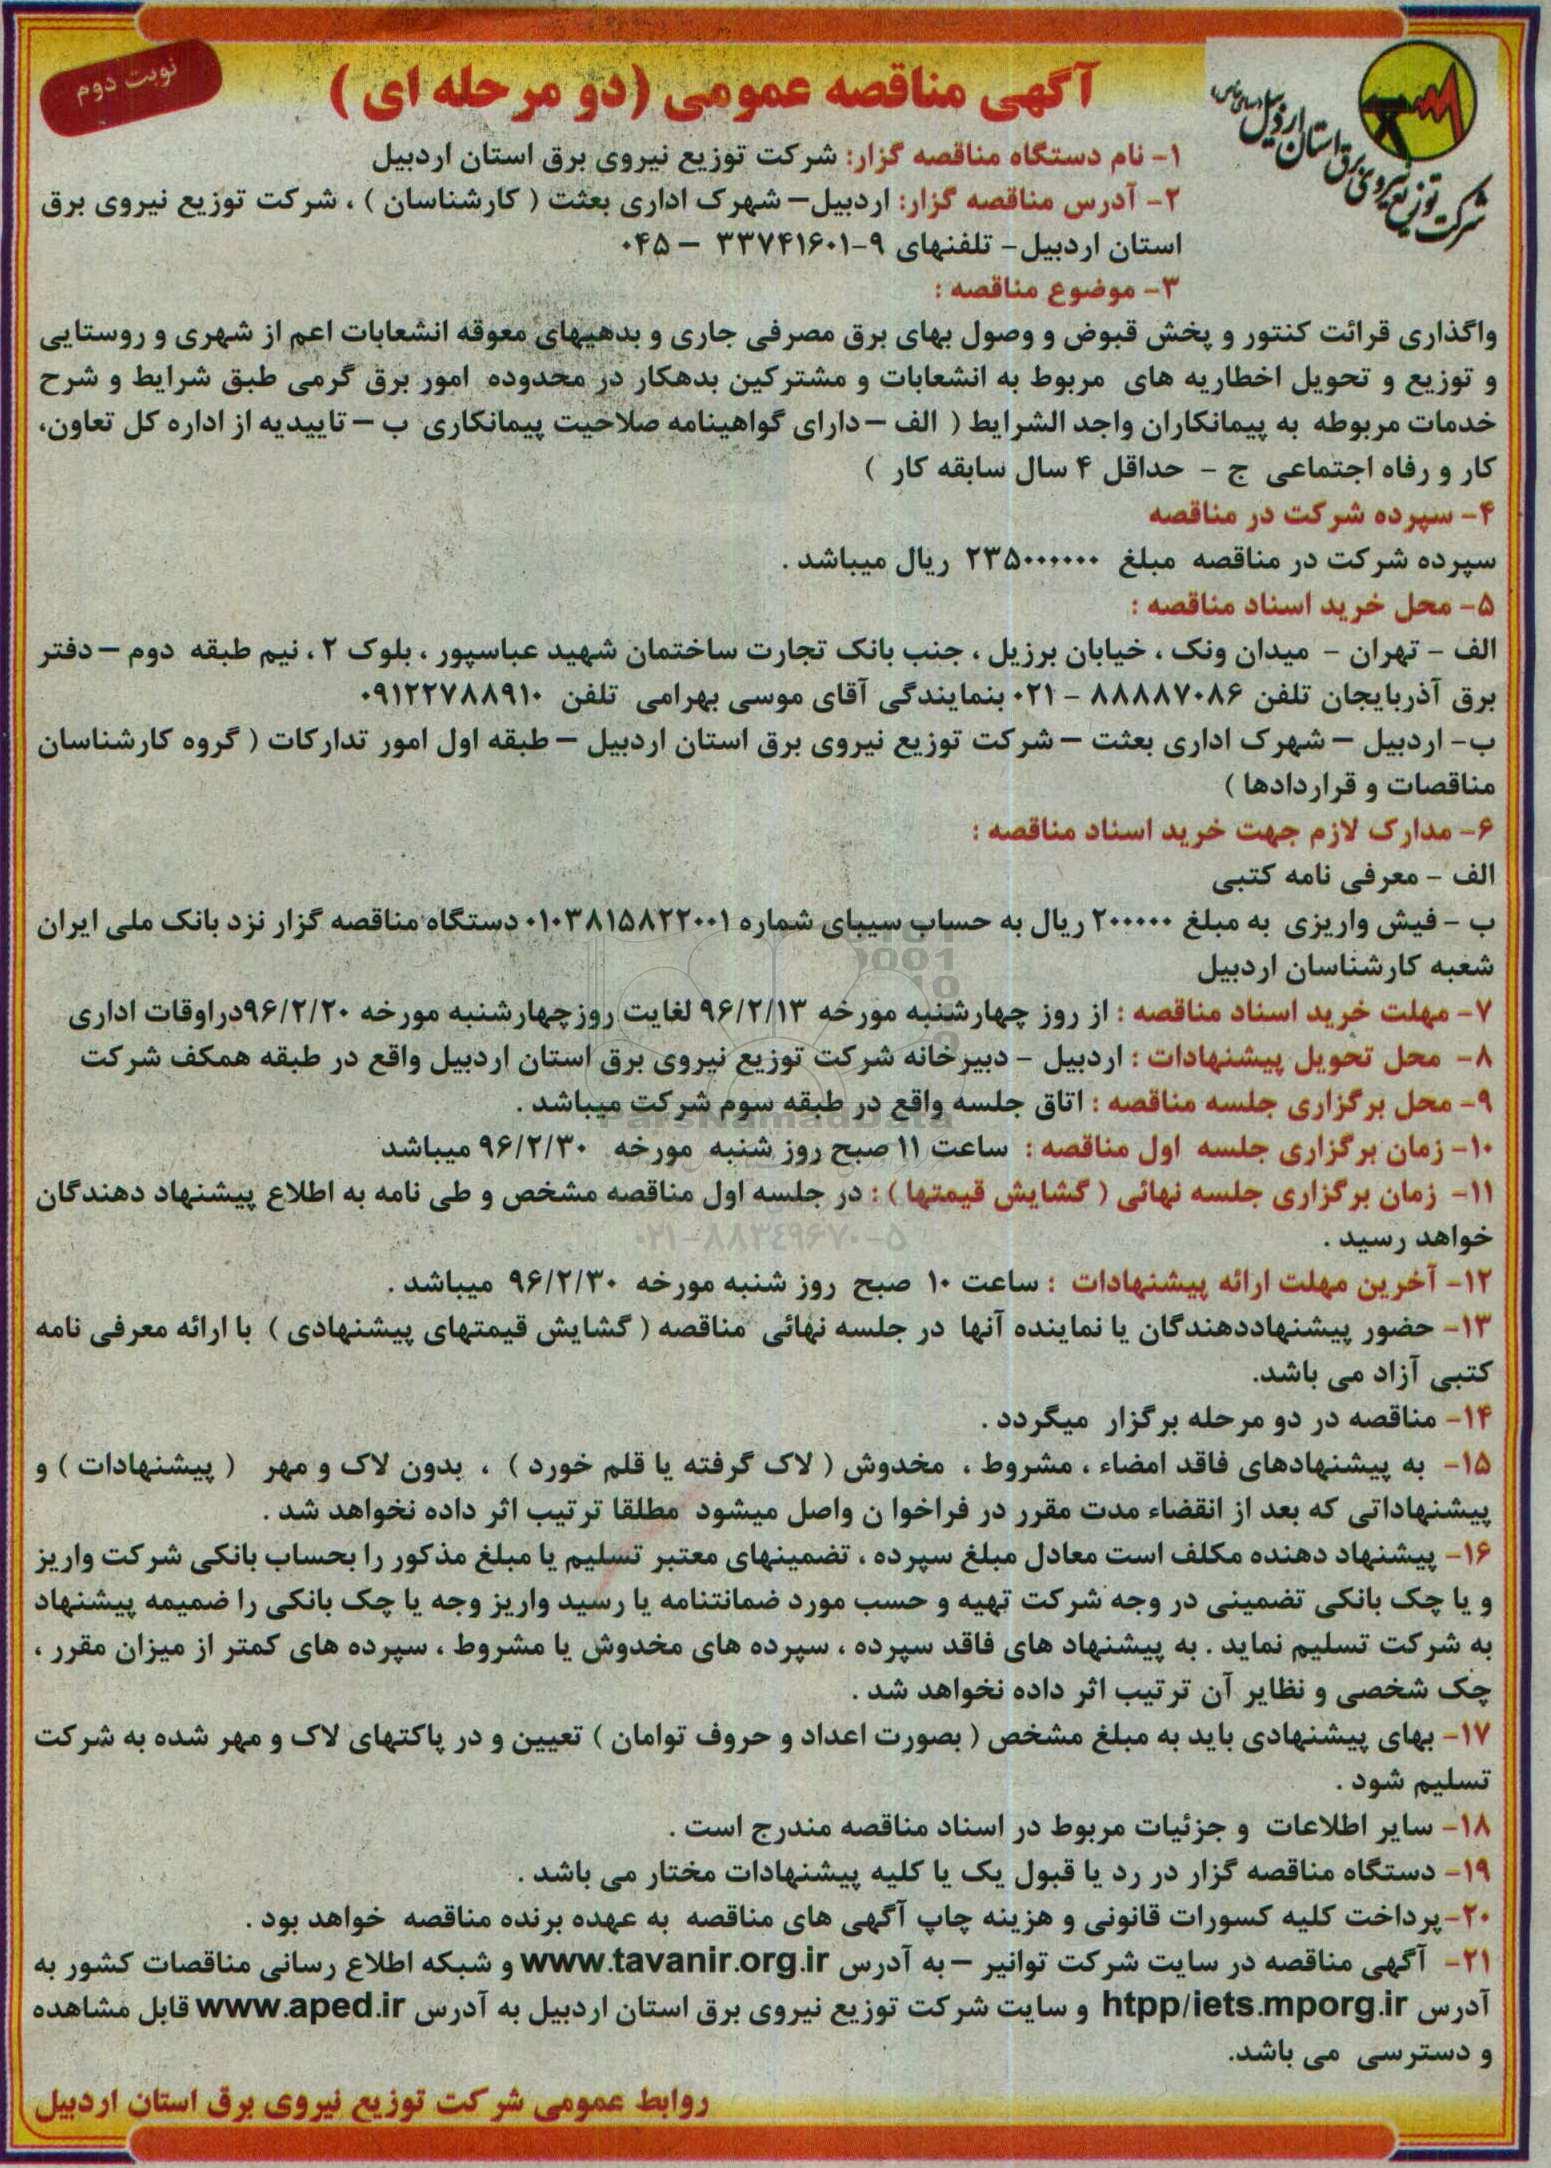 نوبت دوم
آگهی مناقصه عمومی (دو مرحله ای )
شرکت توزیع نیروی برق استان اردبیل
۱- نام دستگاه مناقصه گزار: شرکت توزیع نیروی برق استان اردبیل
۲- آدرس مناقصه گزار: اردبیل– شهرک اداری بعثت ( کارشناسان ) ، شرکت توزیع نیروی برق
استان اردبیل- تلفنهای ۹-۳۳۷۴۱۶۰۱ – ۰۴۵
۳- موضوع مناقصه :
واگذاری قرائت کنتور و پخش قبوض و وصول بهای برق مصرفی جاری و بدهیهای معوقه انشعابات اعم از شهری و روستایی
و توزیع و تحویل اخطاریه های مربوط به انشعابات و مشترکین بدهکار در محدوده امور برق گرمی طبق شرایط و شرح
خدمات مربوطه به پیمانکاران واجد الشرایط ( الف –دارای گواهینامه صلاحیت پیمانکاری ب – تاییدیه از اداره کل تعاون،
کار و رفاه اجتماعی ج - حداقل ۴ سال سابقه کار )
۴- سپرده شرکت در مناقصه
سپرده شرکت در مناقصه مبلغ ۲۳۵۰۰۰۰۰۰ ریال میباشد .
۵- محل خرید اسناد مناقصه :
الف - تهران - میدان ونک ، خیابان برزیل ، جنب بانک تجارت ساختمان شهید عباسپور ، بلوک ۲ ، نیم طبقه دوم – دفتر
برق آذربایجان تلفن ۸۸۸۸۷۰۸۶ - ۰۲۱ بنمایندگی آقای موسی بهرامی تلفن ۰۹۱۲۲۷۸۸۹۱۰
ب- اردبیل – شهرک اداری بعثت – شرکت توزیع نیروی برق استان اردبیل – طبقه اول امور تدارکات ( گروه کارشناسان
مناقصات و قراردادها )
۶- مدارک لازم جهت خرید اسناد مناقصه :
الف - معرفی نامه کتبی
ب - فیش واریزی به مبلغ ۲۰۰۰۰۰ ریال به حساب سیبای شماره ۰۱۰۳۸۱۵۸۲۲۰۰۱ دستگاه مناقصه گزار نزد بانک ملی ایران
شعبه کارشناسان اردبیل
۷- مهلت خرید اسناد مناقصه : از روز چهارشنبه مورخه ۹۶/۲/۱۳ لغایت روزچهارشنبه مورخه ۹۶/۲/۲۰دراوقات اداری
۸- محل تحویل پیشنهادات : اردبیل - دبیرخانه شرکت توزیع نیروی برق استان اردبیل واقع در طبقه همکف شرکت
۹- محل برگزاری جلسه مناقصه : اتاق جلسه واقع در طبقه سوم شرکت میباشد .
ParsNamadData
۱۰- زمان برگزاری جلسه اول مناقصه : ساعت ۱۱ صبح روز شنبه مورخه ۹۶/۲/۳۰ میباشد
۱۱- زمان برگزاری جلسه نهائی ( گشایش قیمتها ) : در جلسه اول مناقصه مشخص و طی نامه به اطلاع پیشنهاد دهندگان
خواهد رسید .
۰۲۱-۸۸۳۴۹۶۷۰-۵
۱۲- آخرین مهلت ارائه پیشنهادات : ساعت ۱۰ صبح روز شنبه مورخه ۹۶/۲/۳۰ میباشد .
۱۳- حضور پیشنهاددهندگان یا نماینده آنها در جلسه نهائی مناقصه ( گشایش قیمتهای پیشنهادی ) با ارائه معرفی نامه
کتبی آزاد می باشد.
۱۴- مناقصه در دو مرحله برگزار میگردد .
۱۵- به پیشنهادهای فاقد امضاء ، مشروط ، مخدوش ( لاک گرفته یا قلم خورد ) ، بدون لاک و مهر ( پیشنهادات ) و
پیشنهاداتی که بعد از انقضاء مدت مقرر در فراخوا ن واصل میشود مطلقا ترتیب اثر داده نخواهد شد .
۱۶- پیشنهاد دهنده مکلف است معادل مبلغ سپرده ، تضمینهای معتبر تسلیم یا مبلغ مذکور را بحساب بانکی شرکت واریز
و یا چک بانکی تضمینی در وجه شرکت تهیه و حسب مورد ضمانتنامه یا رسید واریز وجه یا چک بانکی را ضمیمه پیشنهاد
به شرکت تسلیم نماید . به پیشنهاد های فاقد سپرده ، سپرده های مخدوش یا مشروط ، سپرده های کمتر از میزان مقرر ،
چک شخصی و نظایر آن ترتیب اثر داده نخواهد شد .
۱۷- بهای پیشنهادی باید به مبلغ مشخص ( بصورت اعداد و حروف توامان ) تعیین و در پاکتهای لاک و مهر شده به شرکت
تسلیم شود .
۱۸- سایر اطلاعات و جزئیات مربوط در اسناد مناقصه مندرج است .
۱۹- دستگاه مناقصه گزار در رد یا قبول یک یا کلیه پیشنهادات مختار می باشد .
۲۰-پرداخت کلیه کسورات قانونی و هزینه چاپ آگهی های مناقصه به عهده برنده مناقصه خواهد بود .
۲۱- آگهی مناقصه در سایت شرکت توانیر – به آدرس www.tavanir.org.ir و شبکه اطلاع رسانی مناقصات کشور به
آدرس htpp/iets.mporg.ir و سایت شرکت توزیع نیروی برق استان اردبیل به آدرس www.aped.ir قابل مشاهده
و دسترسی می باشد.
روابط عمومی شرکت توزیع نیروی برق استان اردبیل